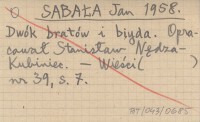 SABAŁA Jan 1958.
Dwók bratów i biyda. Opra-
cował Stanisław Nędza-
Kubiniec. — Wieści ( )
nr 39, s. 7.